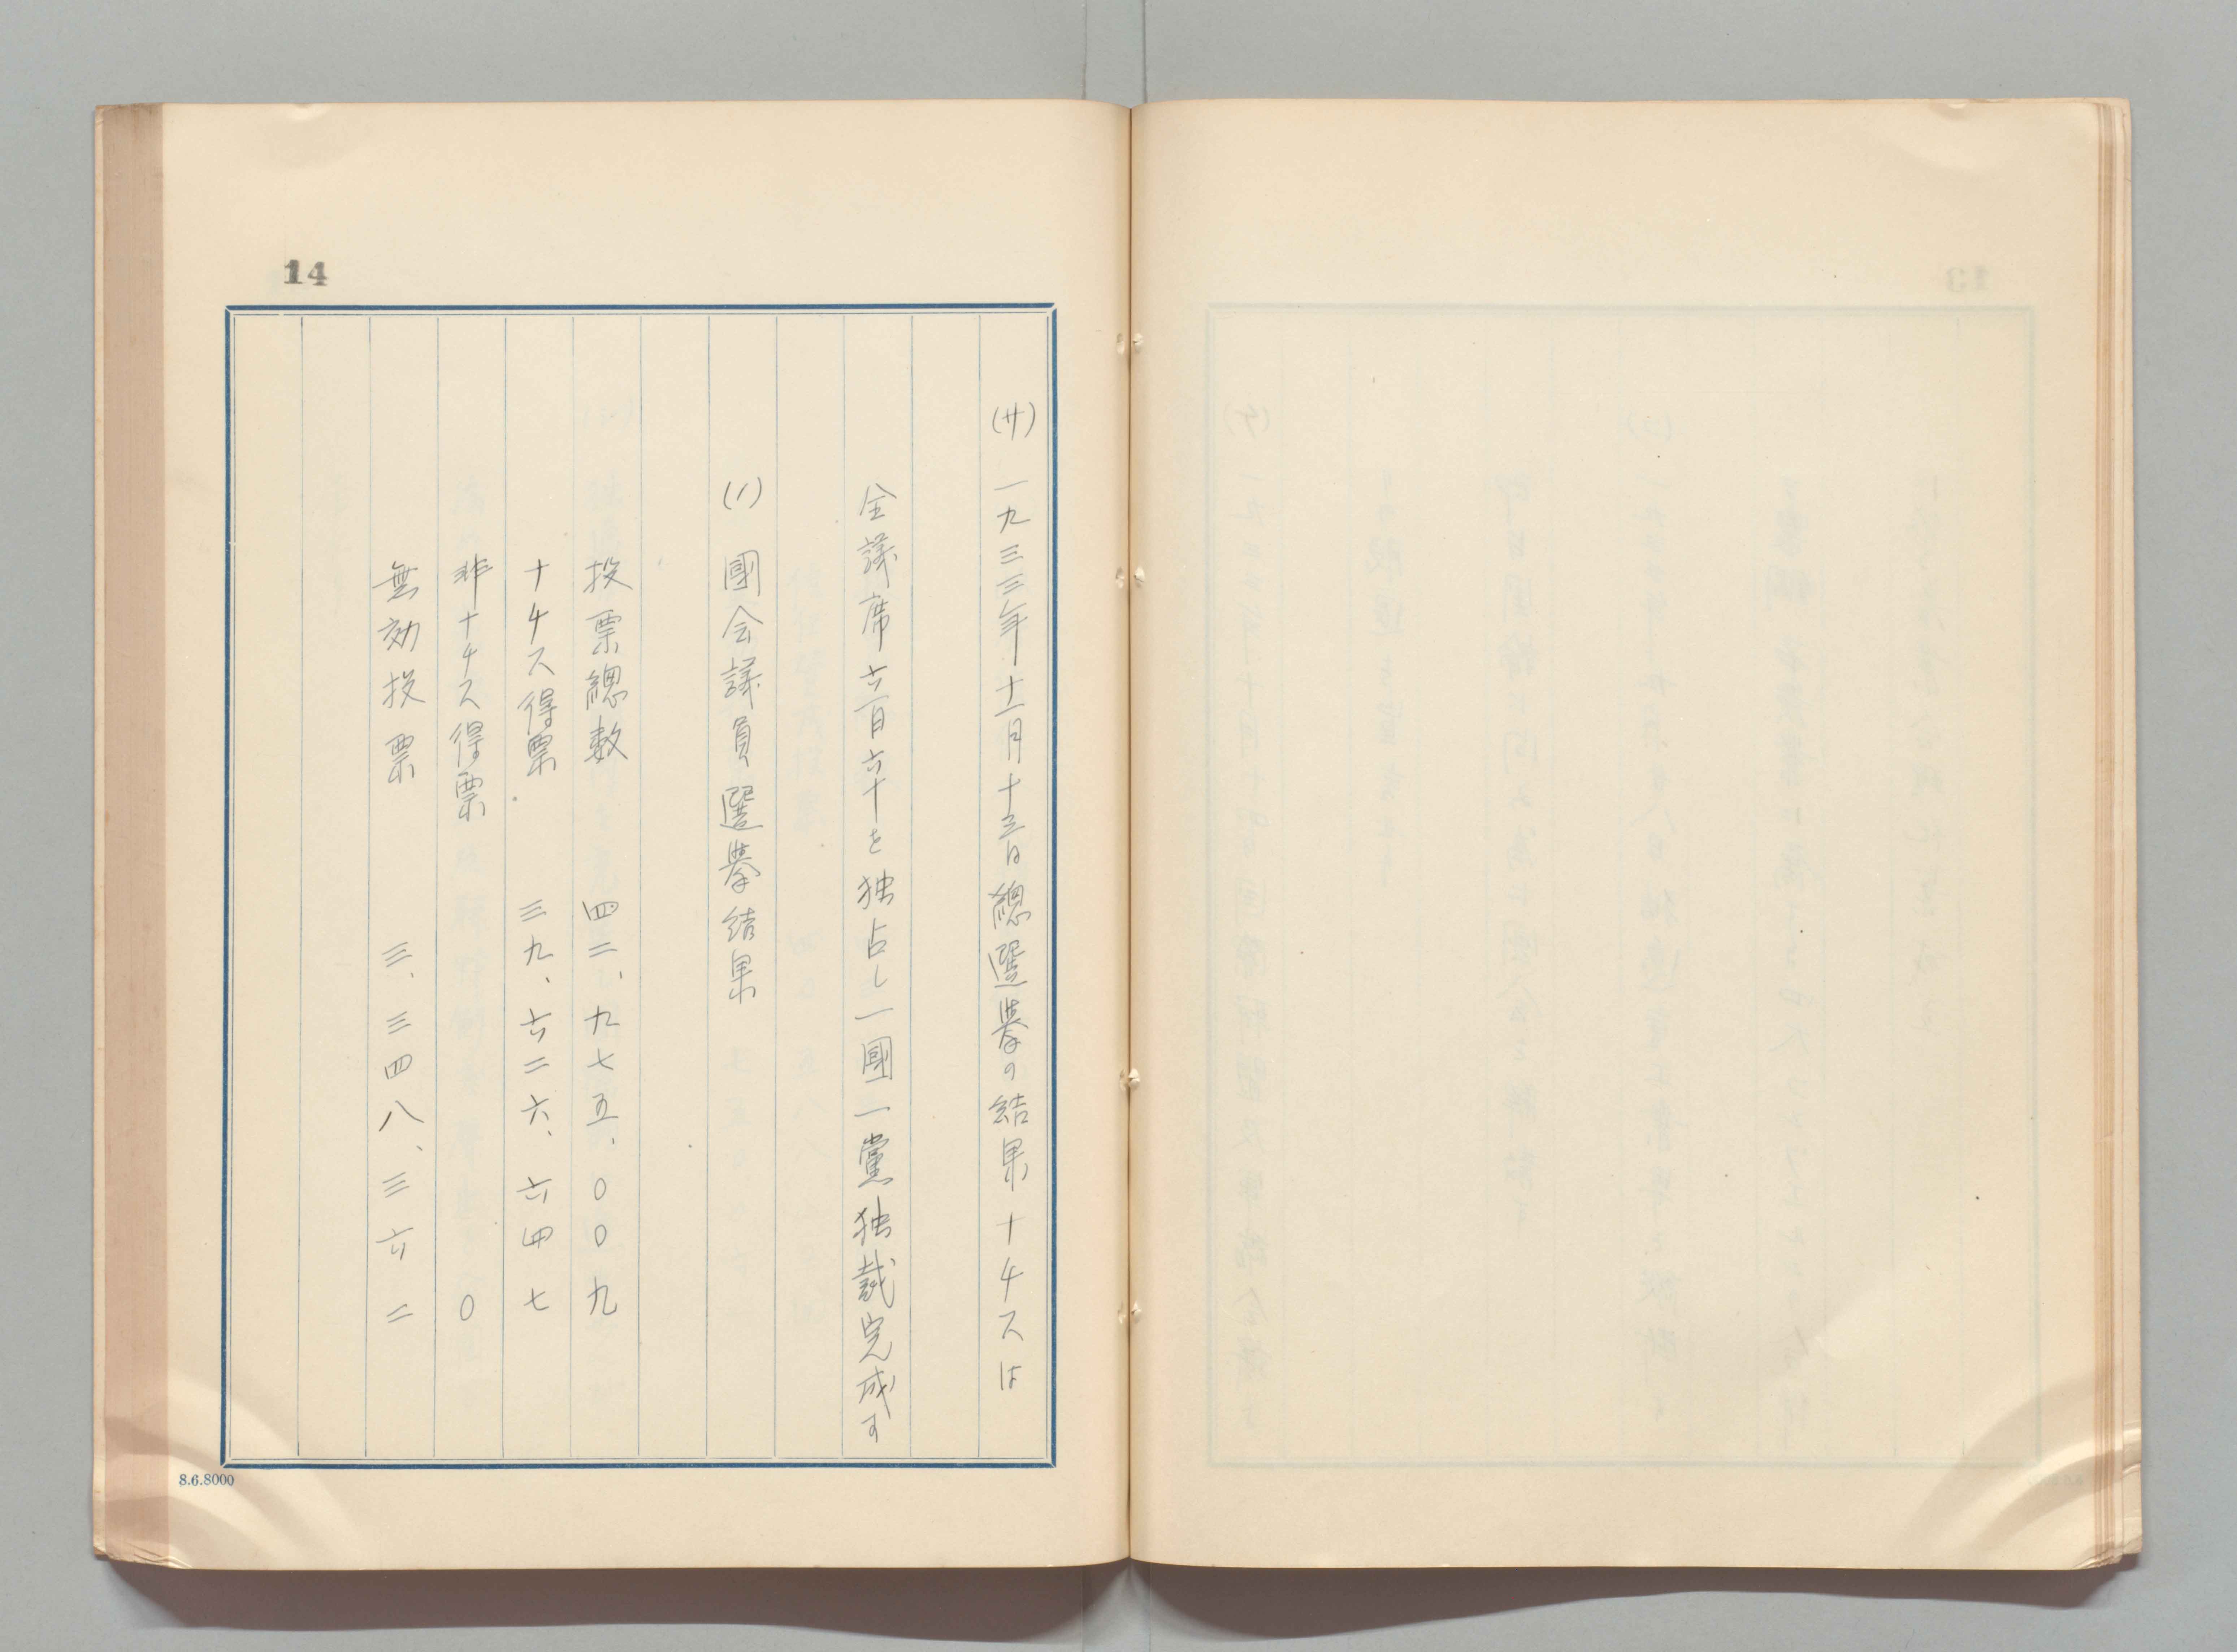 14
(サ) 一九三三年十一月十三日總選擧の結果ナチスは
全議席六百六十を独占し一國一黨独裁完成す
(1) 國会議員選擧結果
投票總数 四二、九七五、〇〇九
ナチス得票 三九、六二六、六四七
非ナチス得票 〇
無効投票 三、三四八、三六二
8.6.8000